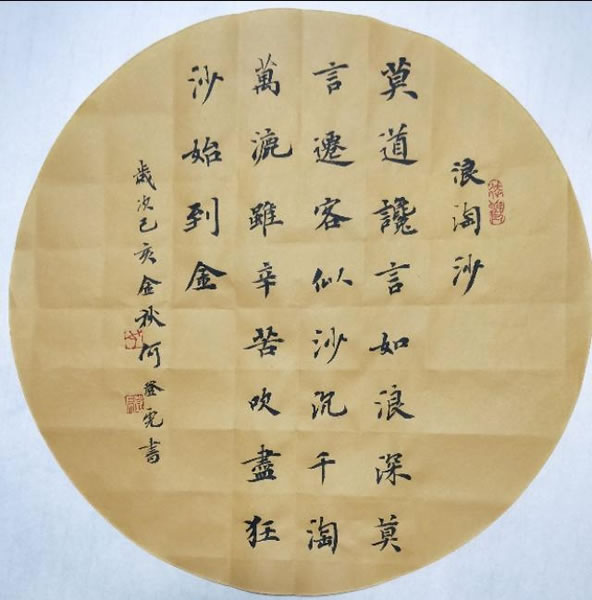 浪淘沙
莫道讒言如浪深莫
言遷客似沙沉千淘
萬漉雖辛苦吹盡狂
沙始到金
歲次己亥金秋何書